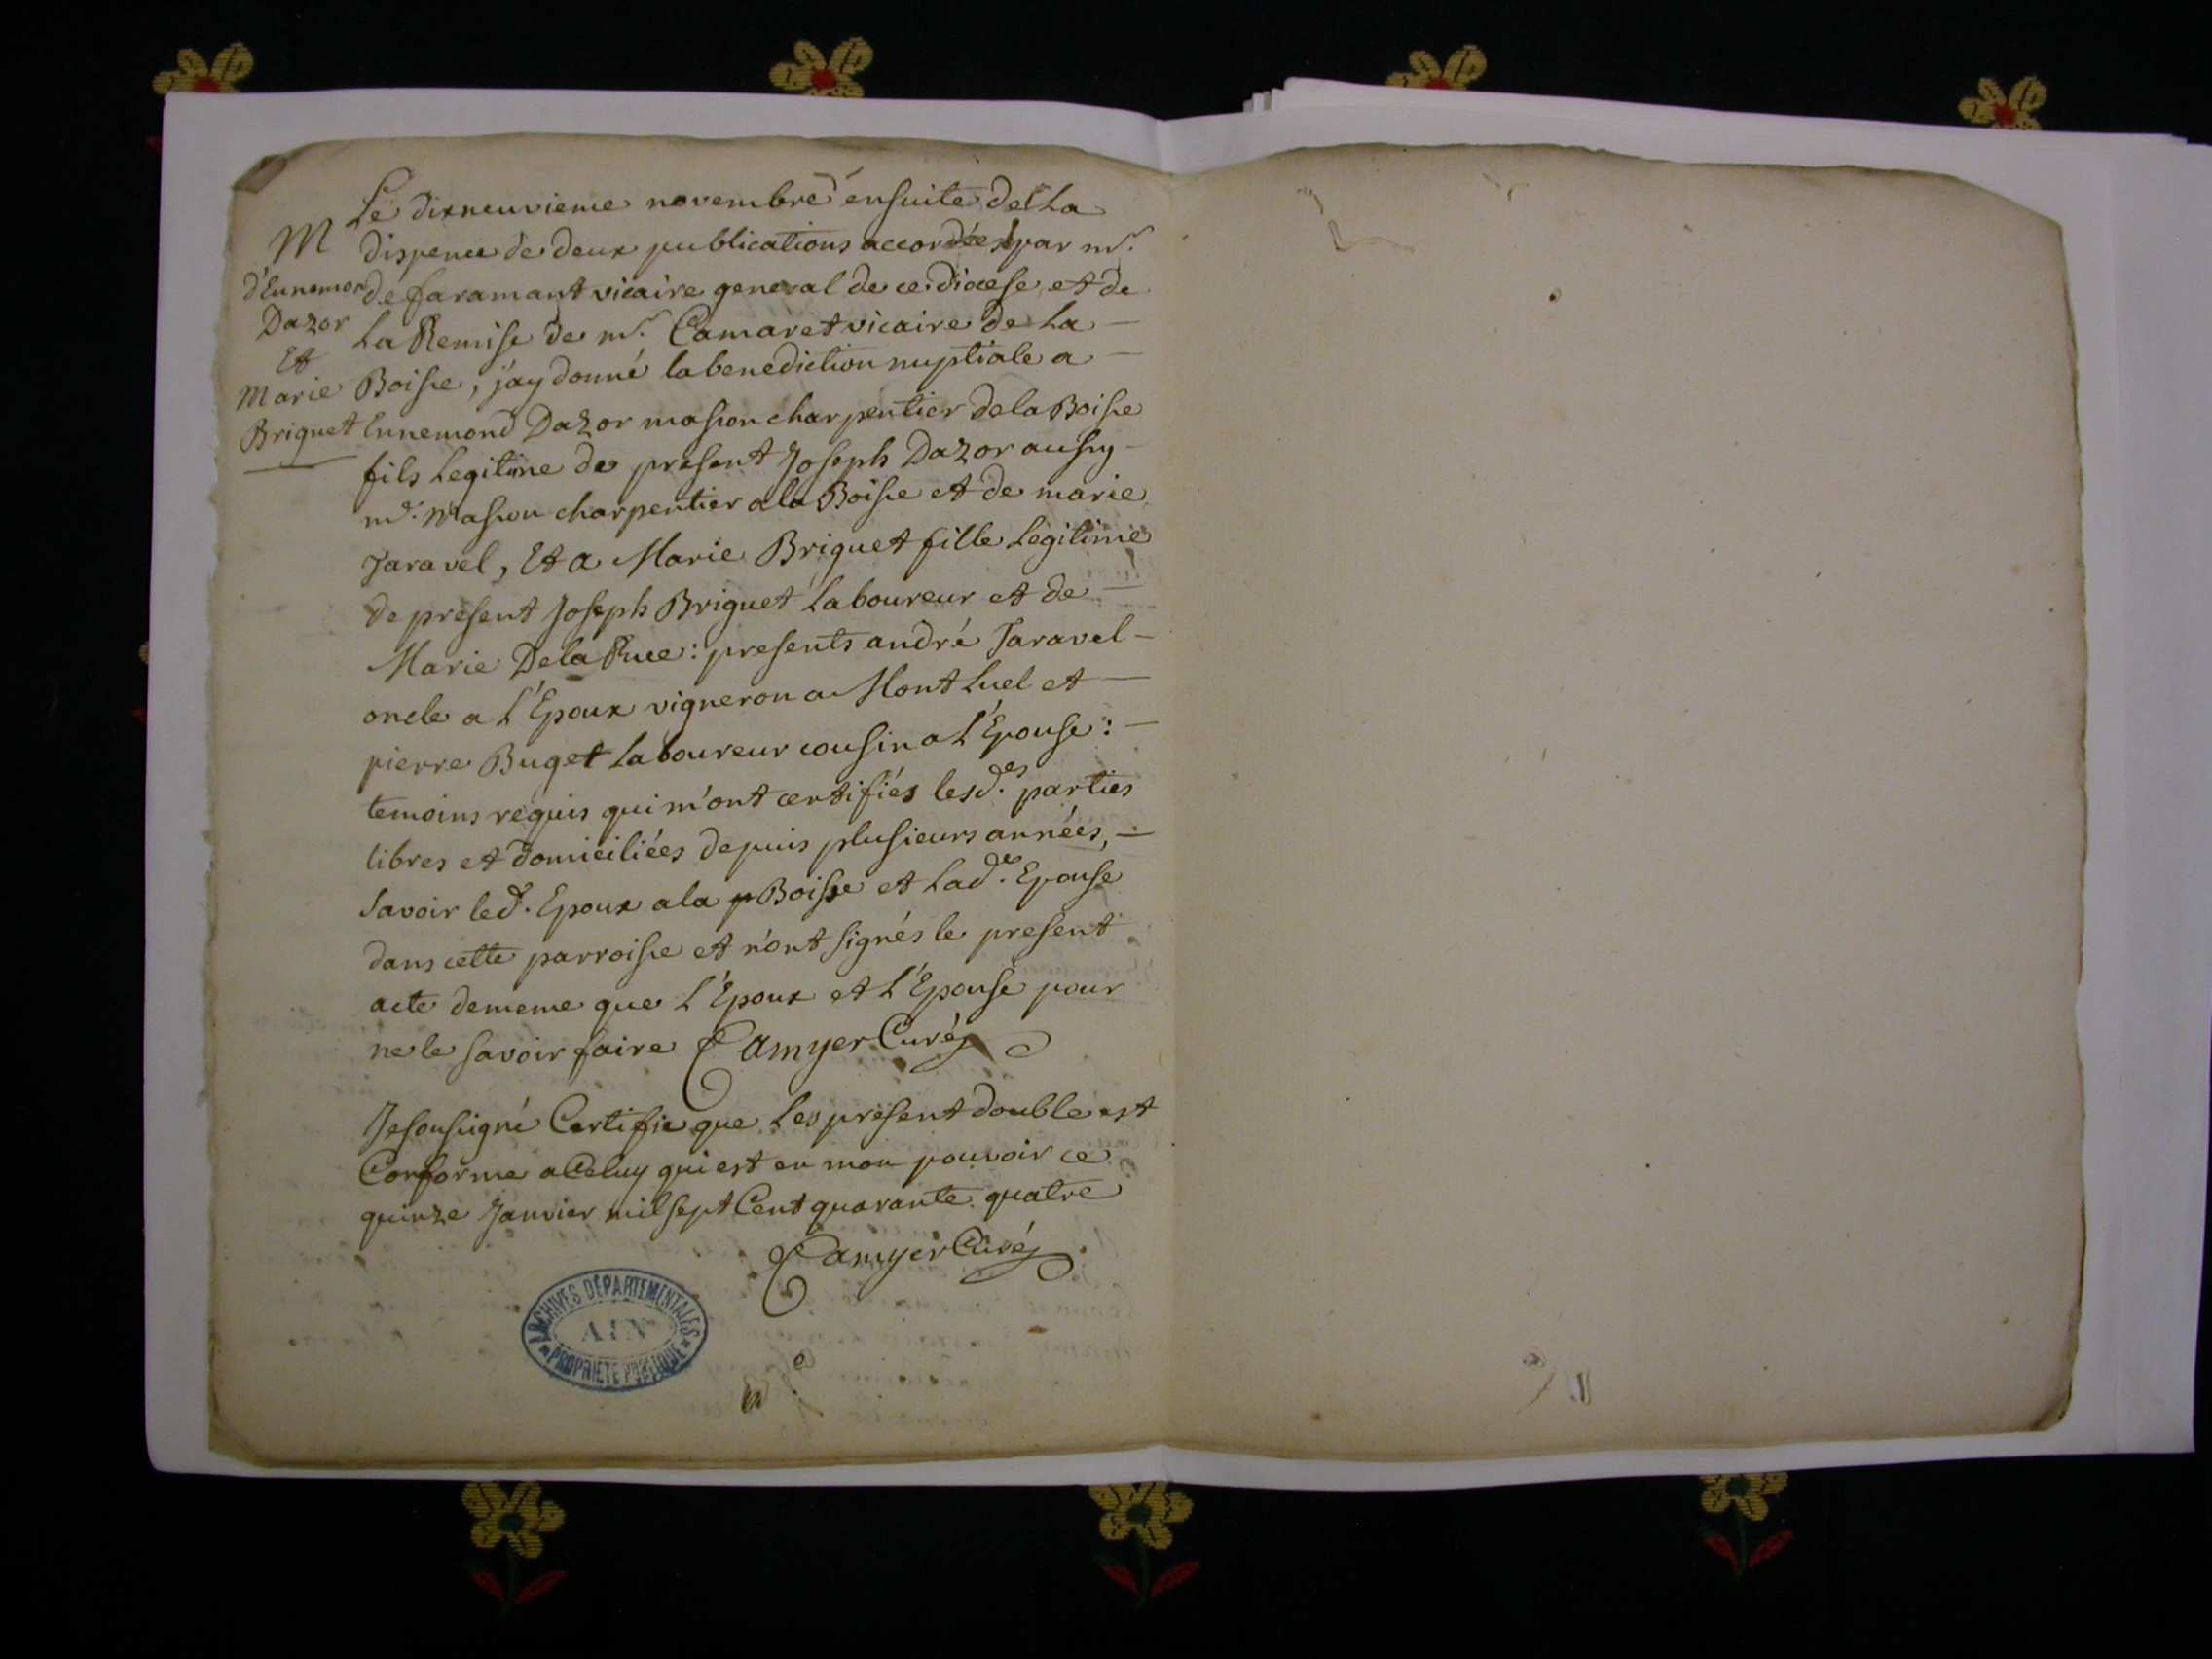 Le dixneuvieme novembre ensuite de La
M
dispence de deux publications accordées par mr.
d'Ennemond
de faramant vicaire general de ce diocese, et de
Dazor
La Remise de mr. Camaret vicaire de La
Et
Marie
Boisse, j'ay donné la benediction nuptiale a
Briquet
Ennemond Dazor masson charpentier de la Boisse
fils Legitime de present Joseph Dazor aussy
md. Masson charpentier a la Boisse et de marie
Jaravel, Et a Marie Briquet fille Legitime
de present Joseph Briquet Laboureur et de
Marie De la Rue : presents andré Jaravel
oncle a L'Epoux vigneron a Mont Luel et
pierre Buget Laboureur cousin a L'Epouse :
temoins requis qui m'ont certifiés lesd.es parties
libres et domiciliées depuis plusieurs années,
Savoir led. Epoux a la Boisse et Lad.e Epouse
dans cette parroisse et n'ont signés le present
acte de meme que L'Epoux et L'Epouse pour
ne le savoir faire Camyer Curé
Je soussigné Certifie que Le present double est
Conforme a Celuy qui est en mon pouvoir ce
quinze Janvier mil sept Cent quarante quatre
Camyer Curé
ARCHIVES DÉPARTEMENTALES
AIN
PROPRIÉTÉ PUBLIQUE